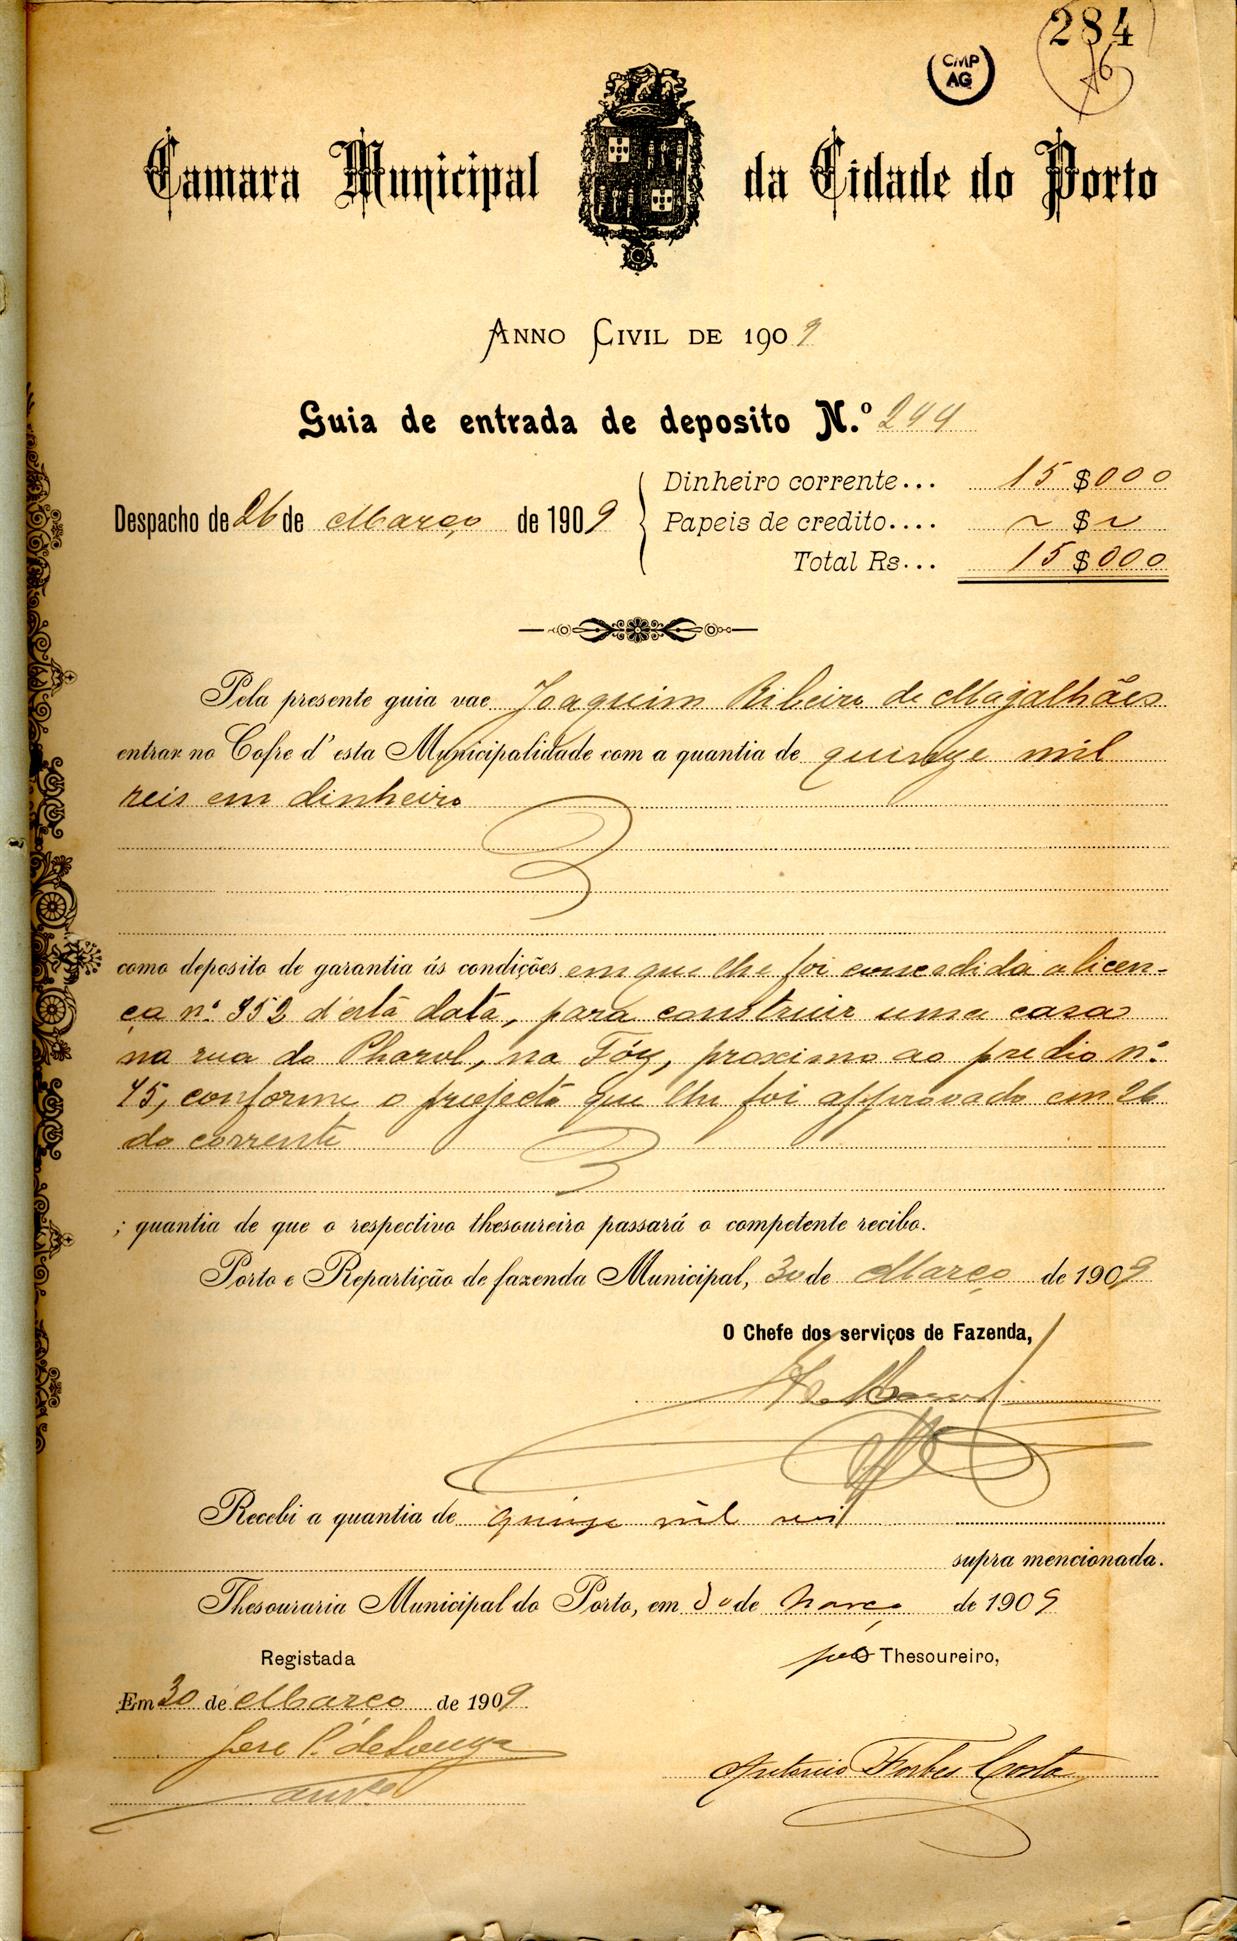 284
16
CMP
AG
Camara Municipal da Cidade do Porto
ANNO CIVIL DE 1909
Guia de entrada de deposito N.º 244
Dinheiro corrente... 15 $ 000
Despacho de 26 de Março de 1909 Papeis de credito.... ~ $ ~
Total Rs... 15 $ 000
Pela presente guia vae Joaquim Ribeiro de Magalhães
entrar no Cofre d'esta Municipalidade com a quantia de quinze mil
reis em dinheiro
como deposito de garantia ás condições em que lhe foi concedida a licen-
ça nº 352 d'esta data, para construir uma casa
na rua do Pharol, na Fóz, proximo ao predio nº
45, conforme o projecto que lhe foi approvado em 26
do corrente
; quantia de que o respectivo thesoureiro passará o competente recibo.
Porto e Repartição de fazenda Municipal, 30 de Março de 1909
O Chefe dos serviços de Fazenda,
Recebi a quantia de quinze mil reis
supra mencionada.
Thesouraria Municipal do Porto, em 30 de Março de 1909
Registada
pelo O Thesoureiro,
Em 30 de Março de 1909
José P. de Souza
Antonio Forbes Costa